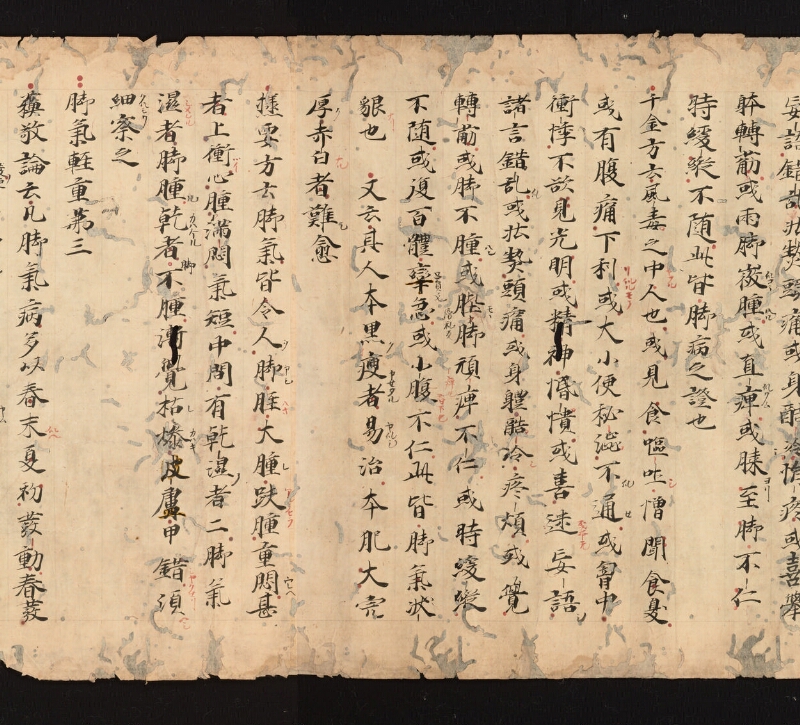 妄語錯乱状勢頭痛或身酷冷惱疼或喜擧
躰轉萠或兩脚微腫或直痺或膝至脚不仁
時緩縱不随此皆脚病之證也
千金方云風毒之中人也或見食嘔吐憎聞食臭
或有腹痛下利或大小便秘澁不通或胷中
衝悸不欲見光明或精神惛憒或喜迷妄語
諸言錯乱或状勢頭痛或身軆酷冷疼煩或覺
轉萠或脚不腫或脞脚頑痺不仁或時緩縱
不随或復百軆攣急或小腹不仁此皆脚氣状
貇也 又云其人本黒瘦者易治本肥大完
厚赤白者難愈
撁要方云脚氣皆令人脚脛大腫趺腫重悶甚
者上衝心腫満悶氣短中間有乾濕者二脚氣
濕者脚腫乾者不腫漸覺枯燥皮膚甲錯須
細察之
脚氣輕重第三
蘓敬論云凡脚氣病多以春末夏初發動春發